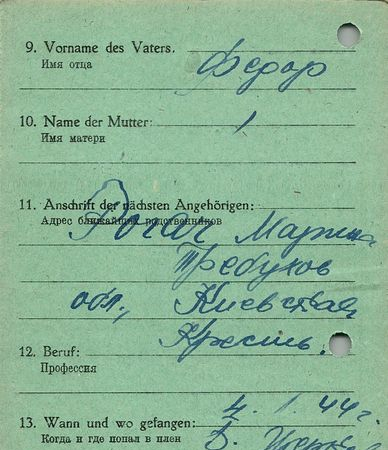 9. Vorname des Vaters.
Имя отца
Федор
10. Name der Mutter:
Имя матери
11. Anschrift der nächsten Angehörigen:
Адрес ближайших родственников
Рогач Марина
Требухов
обл., Киевская
Кресть.
12. Beruf:
Профессия
13. Wann und wo gefangen:
Когда и где попал в плен
4. 1. 44 г.